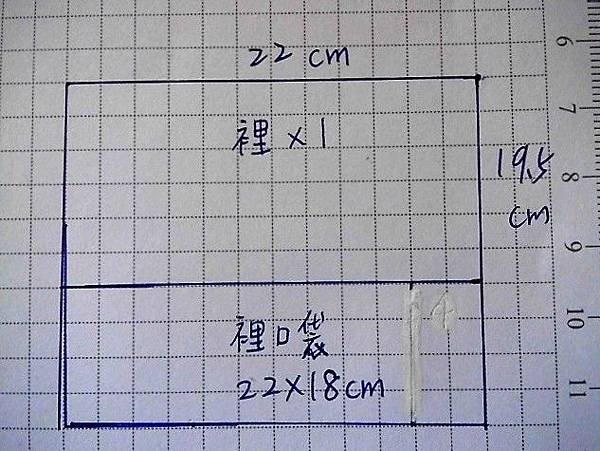 22 cm
裡 x 1
19.5
cm
裡口袋
22x18cm
6
7
8
9
10
11